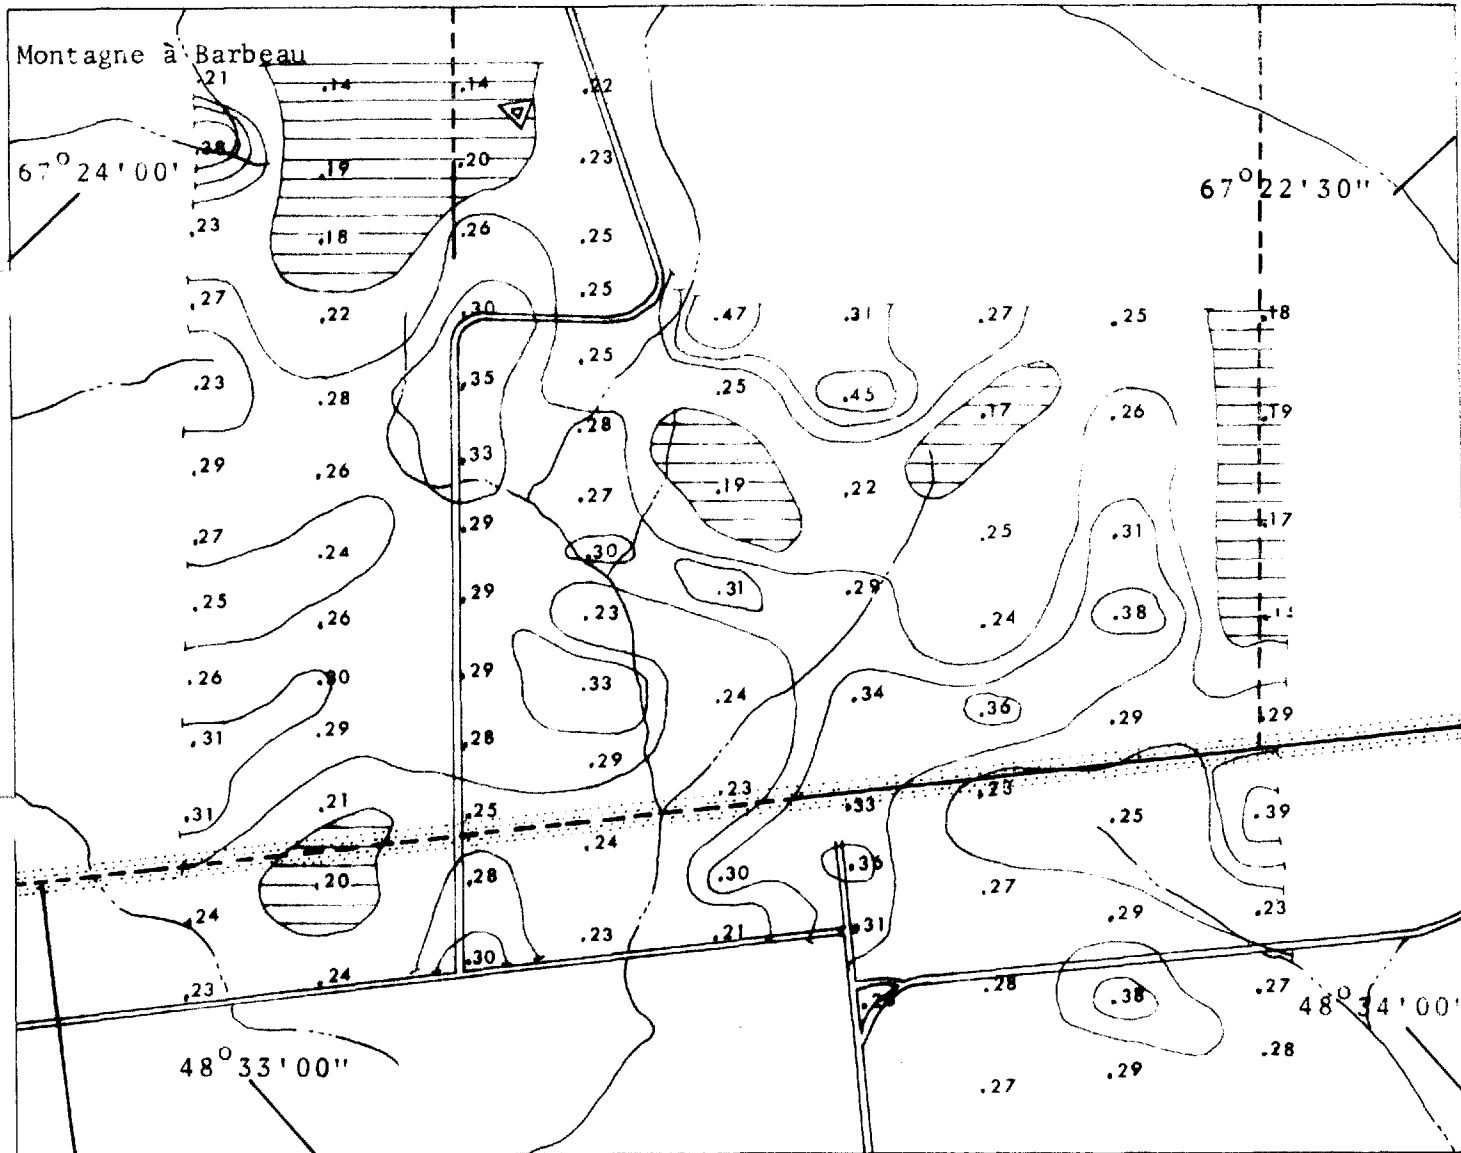 Montagne à Barbeau
.21 .14 .14 .22
.38 .19 .20 .23
67°24'00"
67°22'30"
.23 .18 .26 .25
.27 .22 .30 .25 .47 .31 .27 .25 .18
.23 .28 .35 .25 .25 .45 .17 .26 .19
.29 .26 .33 .28 .19 .22
.27 .24 .29 .27 .25 .31 .17
.30
.25 .26 .29 .23 .31 .29 .24 .38 .15
.26 .30 .29 .33 .24 .34 .36 .29 .29
.31 .29 .28 .29
.31 .21 .25 .24 .23 .33 .25 .39
.20 .28 .30 .36 .27
.24 .23 .21 .31 .29 .23
.23 .24 .30 .28 .38 .27
48°34'00"
48°33'00"
.27 .29 .28